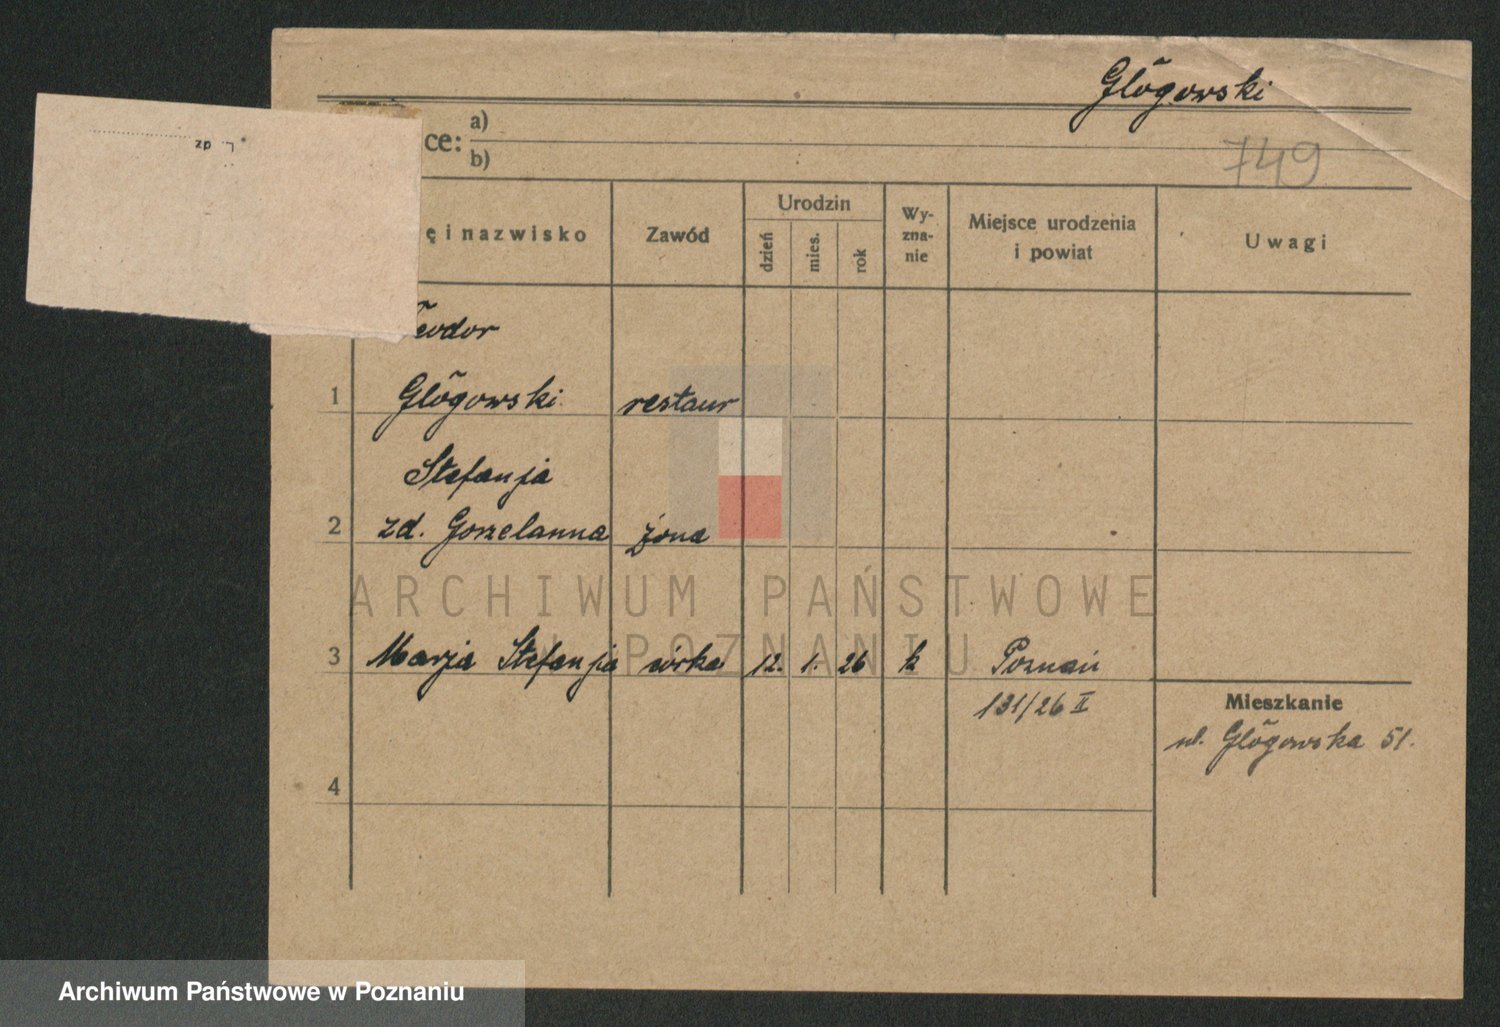 Glõgowski
ce: a)
b)
749
ę i nazwisko
Zawód
Urodzin
dzień
mies.
rok
Wy-
zna-
nie
Miejsce urodzenia
i powiat
Uwagi
L. dz
eodor
1 Glõgowski restaur
Stefanja
2 zd. Gorzelanna żona
3 Marja Stefanja córka 12. 1. 26 k Poznań
131/26 II
Mieszkanie
ul. Glõgowska 51.
4
ARCHIWUM PAŃSTWOWE
W POZNANIU
Archiwum Państwowe w Poznaniu